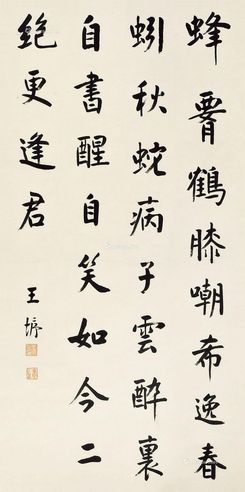 蜂𦝫鶴膝嘲希逸春
蚓秋蛇病子雲醉裏
自書醒自笑如今二
絶更逢君
王垿